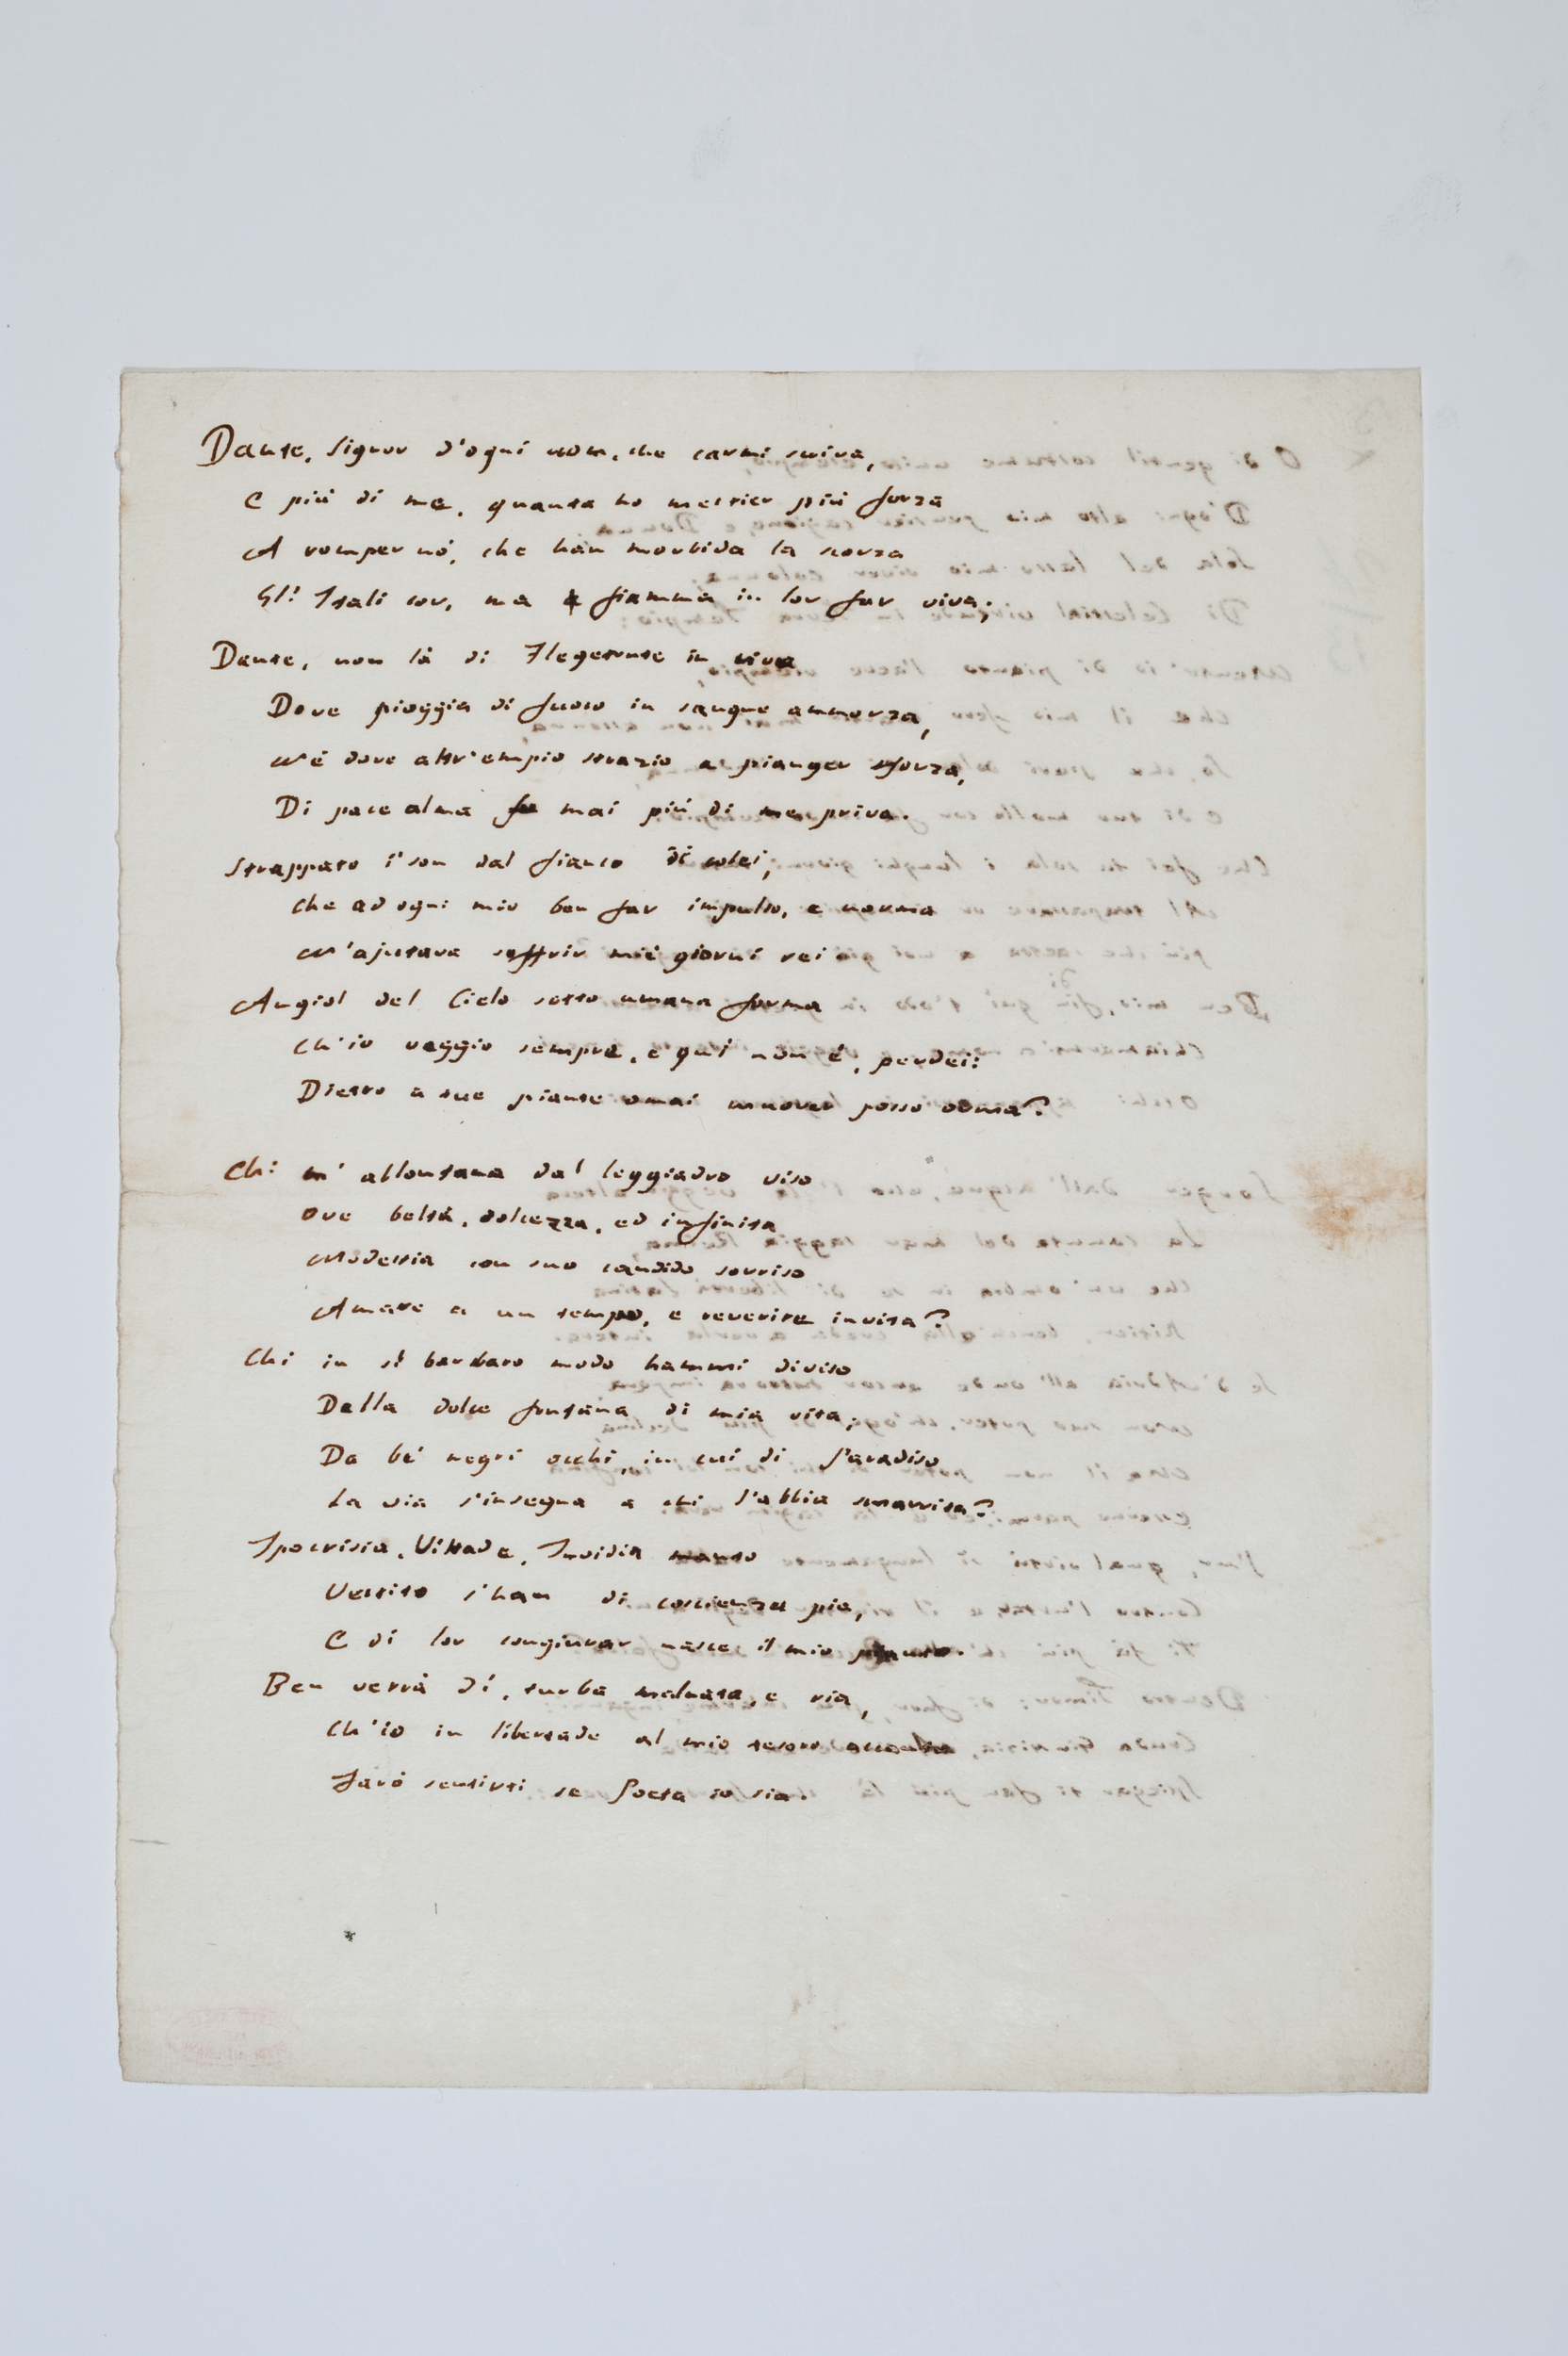 Dante, Signor d'ogni uom, che carmi scriva,
E più di me, quanta ho mestier più forza
A romper nò, che han morbida la scorza
Gl' Itali cor, ma fiamma in lor far viva;
Dante, non là di Flegetonte in riva
Dove pioggia di fuoco in sangue ammorza,
Nè dove altr'empio strazio a pianger sforza,
Di pace alma fu mai più di me priva.
Strappato i' son dal fianco di colei,
Che ad ogni mio ben far impulso, e norma
M'ajutava soffrir miei giorni rei
Angiol del Cielo sotto umana forma
Ch'io veggio sempre, e qui non è, perdei:
Dietro a sue piante omai muover posso orma?
Chi m' allontana dal leggiadro viso
Ove beltà, dolcezza, ed infinita
Modestia con suo candido sorriso
Amare a un tempo, e reverire invita?
Chi in sì barbaro modo hammi diviso
Dalla dolce fontana di mia vita;
Da be' negri occhi, in cui di Paradiso
La via s'insegna a chi l'abbia smarrita?
Ipocrisia, Viltade, Invidia manto
Vestito s'han di coscienza pia,
E di lor congiurar nasce il mio pianto.
Ben verrà dì, turba malnata, e ria,
Ch'io in libertade al mio tesoro accanto
Farò sentirti se Poeta io sia.